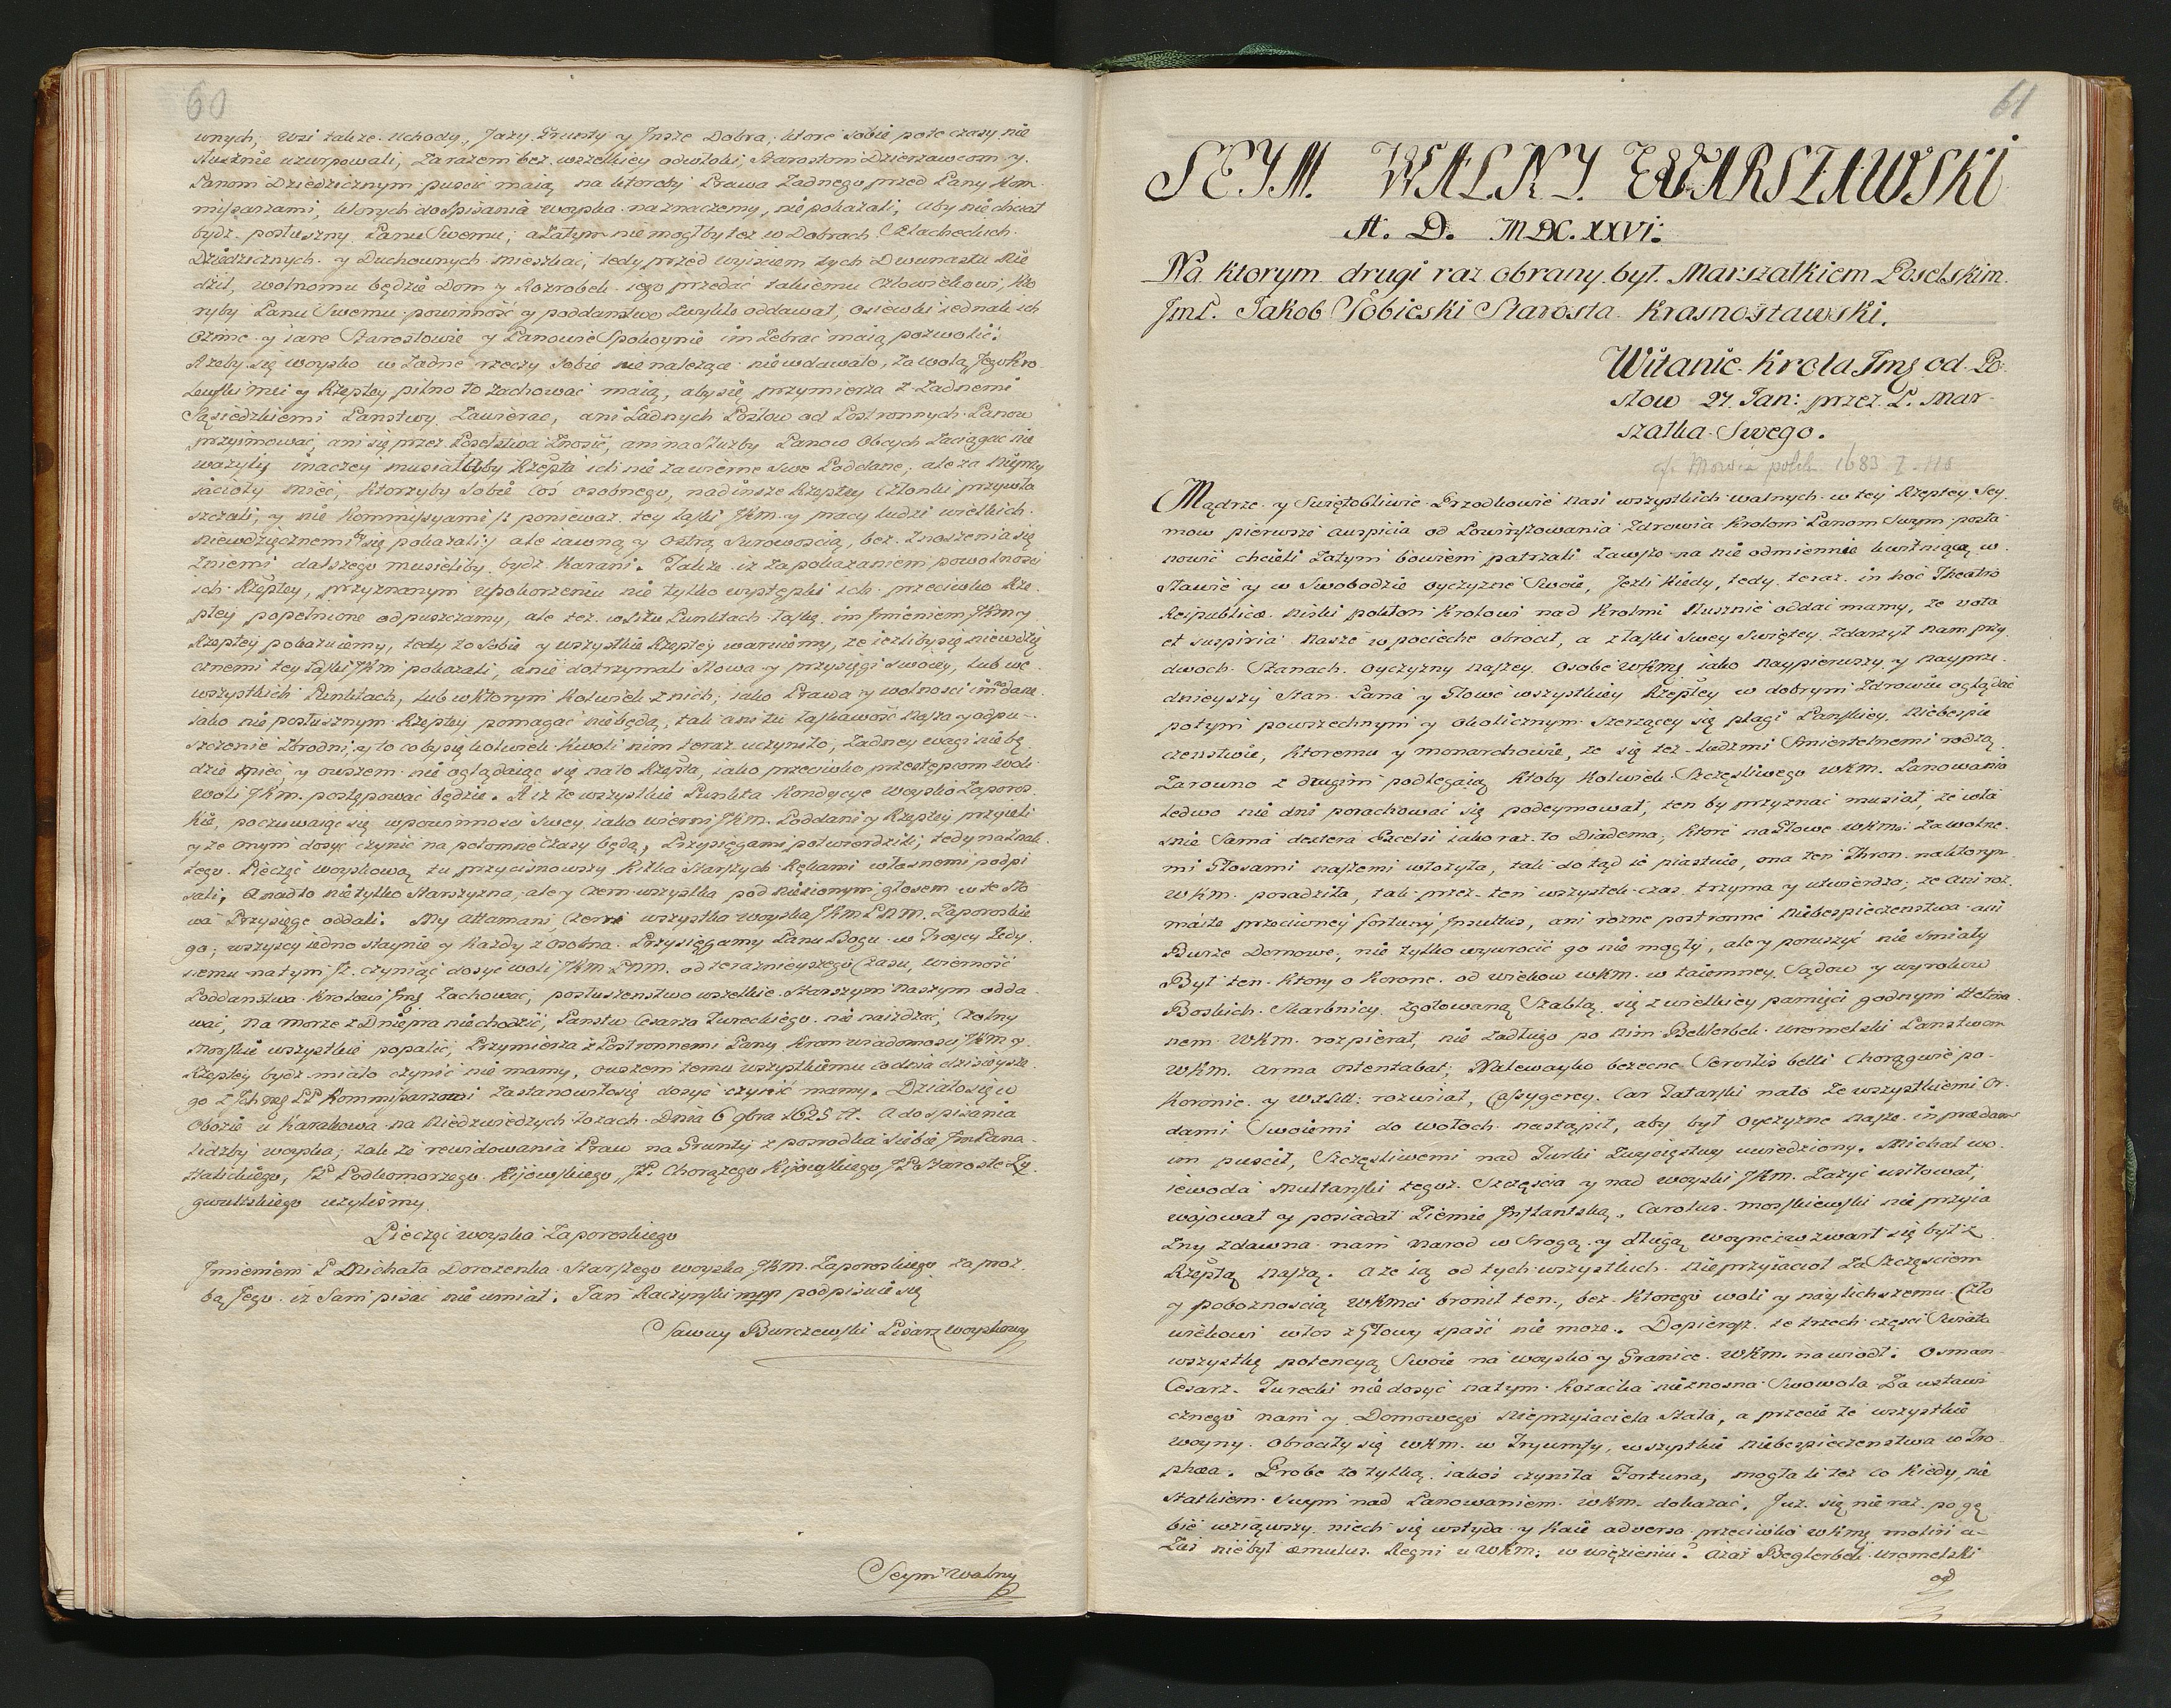 60
wnych, wsi także Uchody, Jazy Grunty y Jnsze Dobra, ktore sobie pote czasy nie
słusznie uzurpowali, zarazem bez wszelkiey odwłoki Starostom Dzierzawcom y
Panom Dziedzicznym puscić maią na ktoreby Prawa Zadnego przed Pany Kom
mißarzami, ktorych do Spisania woyska naznaczemy, nie pokazali, aby nie chciał
bydz posłuszny Panu Swemu; a Zatym nie mogłby tez w Dobrach Szlacheckich
Dziedzicznych y Duchownych mieszkać, tedy przed wysciem tych Dwunastu Nie
dziel, wolnemu będzie Dom y Rozrobek iego przedać takiemu Człowiekowi, Kto
ryby Panu Swemu powinność y poddanstwo Zwykłe oddawał, osiewki iednak ich
ozime y iare Starostowie y Panowie Spokoynie im Zebrać maią pozwolić.
Azeby się woysko w Zadne rzeczy Sobie nie nalezące niewdawało, Za wolą Jego Kro
lewſki Mci y Rzeptey pilno to zachować maią, aby się przymierza z Zadnemi
Sąsiedzkiemi Panstwy Zawierac, ani Zadnych Posłow od Postronnych Panow
przyimować, ani się przez Poselstwa Znosić, ani na Służby Panow Obcych Zaciągac nie
wazyły inaczey musiałaby Rzepta ich nie za wierne Swe Poddane, ale za Nieprzy
iacioły mieć, Ktorzyby Sobie coś osobnego, nad insze Rzeptey Członki przywła
szczali, y nie Kommißyami /: ponieważ tey łaſki JKM y pracy ludzi wielkich
niewdzięcznemi by się pokazali :/ ale iawną y ostrą Surowoscią, bez Znoszenia się
Zniemi dalszego musieliby bydz Karani. Także iz za pokazaniem powolnosci
ich Rzeptey, przyznanym Upokorzeniu nie tylko występki ich przeciwko Rze
ptey popełnione odpuszczamy, ale tez w Siłu Punktach łaſkę im Jmieniem JKM y
Rzeptey pokazuiemy, tedy to Sobie y wszystkie Rzeptey waruiemy, ze iezliby się niewdzię
cznemi tey łaſki JKM pokazali, a nie dotrzymali Słowa y przysięgi Swoiey, lub we
wszystkich Punktach, lub w ktorym Kolwiek z nich; iako Prawa y wolnosci im dane
iako nie posłusznym Rzeptey pomagać niebędą, tak ani tu łaſkawość Nasza y odpu-
szczenie Zbrodni, y to coby się kolwiek Kwoli nim teraz uczyniło, Zadney wagi nie bę
dzie mieć, y owszem nie oglądaiąc się na to Rzepta, iako przeciwko przestępcom woli
woli JKM. postępować będzie. A iz te wszystkie Punkta Kondycye woysko Zaporos
kie, poczuwaiąc się w powinnosci Swey iako wierni JKM. Poddani y Rzeptey przyieli
y ze onym dosyć czynić na potomne Czasy będą, Przysięgami potwierdzili, tedy na Znak
tego Pieczęć woyskową tu przycisnowszy Kilka Starszych Rękami własnemi podpi
sali, A nadto nie tylko Starszyzna, ale y Czern wszystka pod niesionym głosem w te Sło
wa Przysięge oddali. My Attamani, Czern wszystka woyska JKM PNM. Zaporoskie
go, wszyscy iedno staynie y Kazdy z osobna Przysięgamy Panu Bogu w Troycy Jedy
nemu na tym /:z. czyniąc dosyć woli JKM PNM. od teraznieyszego Czasu, wierność
Poddanstwa Krolowi Jmę Zachować, posłuszenstwo wszelkie Starszym Naszym odda
wać, na morze z Dniepra nie chodzić, Panstw Cesarza Tureckiego nie naiezdzać, Czolny
Morſkie wszystkie popalić, Przymierza z Postronnemi Pany Kron wiadomosci JKM y
Rzeptey bydz miało czynić nie mamy, owszem temu wszystkiemu co dnia dzisieysze
go z Jch mę PP Kommißarzowi Zastanowiłosię dosyć czynić mamy. Działosię w
Obozie u Karakowa na Niedzwiedzych Łozach Dnia 6 9bra 1625 R. A do spisania
liczby woyska, tak ze rewidowania Praw na Grunty z posrodka Siebie Jm Pana
Halickiego, JP Podkomorzego Kijowſkiego, JP. Chorązego Kijowſkiego JP Staroste Zy
gwultskiego uzyliśmy
Pieczęć woyska Zaporoskiego
Jmieniem P Michała Dorozenka Starſzego woyska JKM. Zaporoskiego za proz
bą Jego iz Sam pisać nie umiał; Jan Raczynſki mpp podpisuie się
Sawuy Burczewſki Pisarz woyskowy
Seym walny
61
SEYM. WALNY. WARSZAWSKI
A. D. MDC.XXVI.
Na ktorym drugi raz obrany był Marszałkiem Poselskim.
JmP. Jakob Sobieski Starosta Krasnostawski.
Witanie Krola Jmę od Po
słow 27. Jan: przez P. Mar-
szałka Swego.
1683 I. 118
Mądrze y Swiętobliwie Przodkowie nasi wszystkich walnych w tey Rzeptey Sey
mow pierwsze auspicia od Powinſzowania Zdrowia Krolom Panom Swym posta
nowić chcieli Zatym bowiem patrzali Zawsze na nie odmiennie kwitniącą w
sławie y w Swobodzie oyczyzne Swoie, Jezli Kiedy, tedy teraz in hoc Theatro
Reipublicæ niski pokłon Krolowi nad Krolmi słusznie oddać mamy, ze vota
et suspiria nasze w pocieche obrocił, a z łaſki Swey Swiętey Zdarzył nam przy
dwoch Stanach oyczyzny naszey osobe WKmę iako naypierwszy y nayprze
dnieyszy Stan Pana y Głowe wszystkiey Rzeptey w dobrym Zdrowiu oglądać
potym powszechnym y okolicznym Szerzącey się plagi Panſkiey niebespie
czenstwie, Ktoremu y monarchowie, ze się tez ludzmi Smiertelnemi rodzą
Zarowno z drugimi podlegaią Ktoby Kolwiek Szczęsliwego WKM. Panowania
ledwo nie dni porachować się podeymował, ten by przyznać musiał, ze wła
snie Sama dextera Excelsi iako raz to Diadema, Ktore na Głowe WKM. Za wolne
mi Głosami naszemi włozyła, tak do tąd ie piastuie, ona ten Thron na ktorym
WKM. posadziła, tak przez ten wszystek czas trzyma y utwierdza; ze ani roz
maite przeciwney fortuny Jnsultus, ani rozne postronne niebespieczenstwa ani
Burze Domowe, nie tylko wywrocić go nie mogły, ale y poruszyć nie Smiały
Był ten Ktory o Korone od wiekow WKM. w taiemney Sądow y wyrokow
Boskich Skarbnicy Zgotowaną Szablą się z wielkiey pamięci godnym Hetma
nem WKM. rozpierał, nie zadługo po nim Bellerbek Uromelski Panstwom
WKM. arma ostentabat; Nalewayko bezecne Servilis belli Chorągwie po-
Koronie y WXLitt: rozwiał, Caßygerey Car Tatarſki nato ze wszystkiemi Or
dami Swoiemi do wołoch nastąpił, aby był Oyczyzne nasze in prædam
im puscił, Szczęsliwemi nad Turki Zwycięstwy uwiedziony. Michał wo
iewoda Multanſki tegoz Szczęscia y nad woyſki JKM. Zazyć usiłował,
wojował y posiadał Ziemie Jnflantską, Carolus moskiewſki nie przyia
zny zdawna nam narod w Srogą y długą woynę zwarł się był z
Rzeptą naszą. a ze ią od tych wszystkich nieprzyiacioł Za Szczęsciem
y poboznoscią WKMci bronił ten, bez Ktorego woli y naylichszemu Czło
wiekowi włos z Głowy spaść nie moze. Dopierosz ze trzech części Swiata
wszystkę potencyą Swoie na woysko y Granice WKM. nawiodł Osman
Cesarz Turecki nie dosyć natym Kozacka nieznosna Swowola Za ustawi
cznego nam y Domowego nieprzyiaciela stała, a przecie te wszystkie
woyny obrociły się WKM. w Tryumfy, wszystkie niebespieczenstwa w Tro
phæa. Probe to tylką iakoś czyniła Fortuna, mogła li też co Kiedy nie
statkiem Swym nad Panowaniem WKM. dokazać. Juz się nie raz po gę
bie wziąwszy niech się wstyda y Kaie adversa przeciwko WKmę moliri a-
Zaś niebył æmulus Regni u WKM. w więzieniu? azaś Beglerbek Uromelski
od